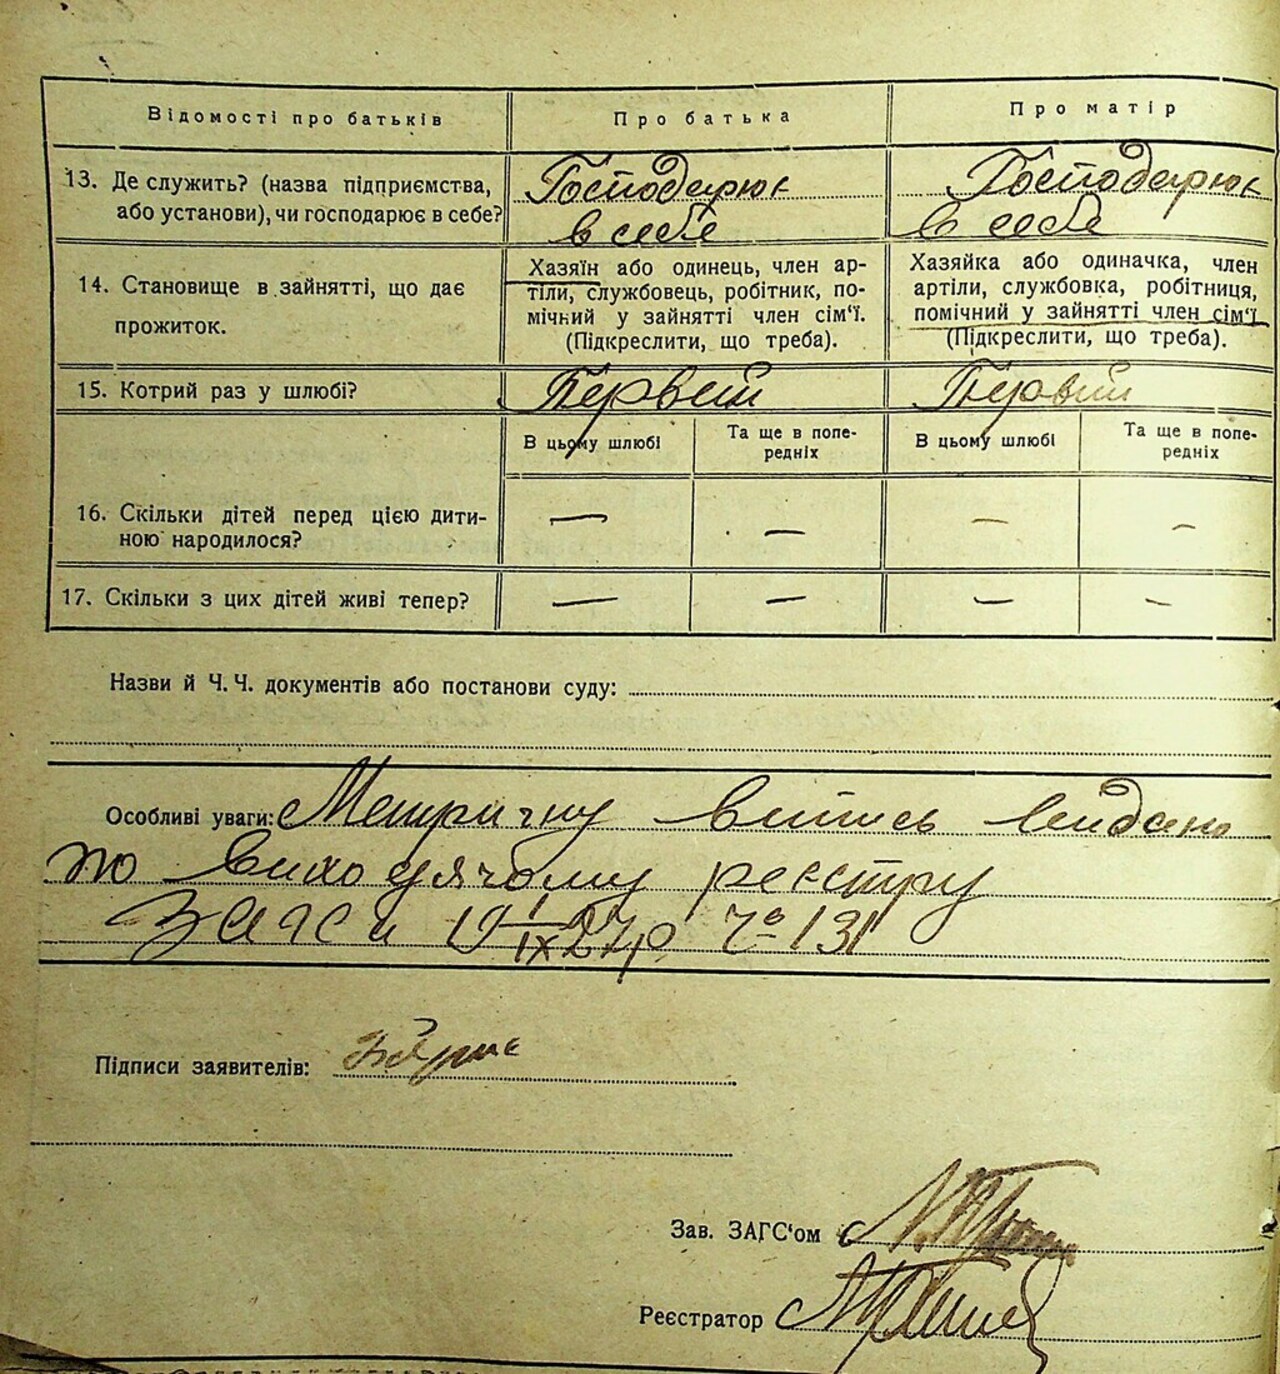 Відомості про батьків Про батька Про матір
13. Де служить? (назва підприємства, або установи), чи господарює в себе?
Господарює
в себе
Господарює
в себе
14. Становище в зайнятті, що дає
прожиток.
Хазяїн або одинець, член ар-
тіли, службовець, робітник, по-
мічний у зайнятті член сім‘ї.
(Підкреслити, що треба).
Хазяйка або одиначка, член
артіли, службовка, робітниця,
помічний у зайнятті член сім‘ї
(Підкреслити, що треба).
15. Котрий раз у шлюбі? Первий Первий
В цьому шлюбі
Та ще в попе-
редніх
В цьому шлюбі
Та ще в попе-
редніх
16. Скільки дітей перед цією дити-
ною народилося? — — — —
17. Скільки з цих дітей живі тепер? — — — —
Назви й Ч. Ч. документів або постанови суду:
Особливі уваги: Метричну випись видано
по виходячому реєстру
загса 19 1/IX 27 р Чо 131
Підписи заявителів:
Зав. ЗАГС‘ом
Реєстратор